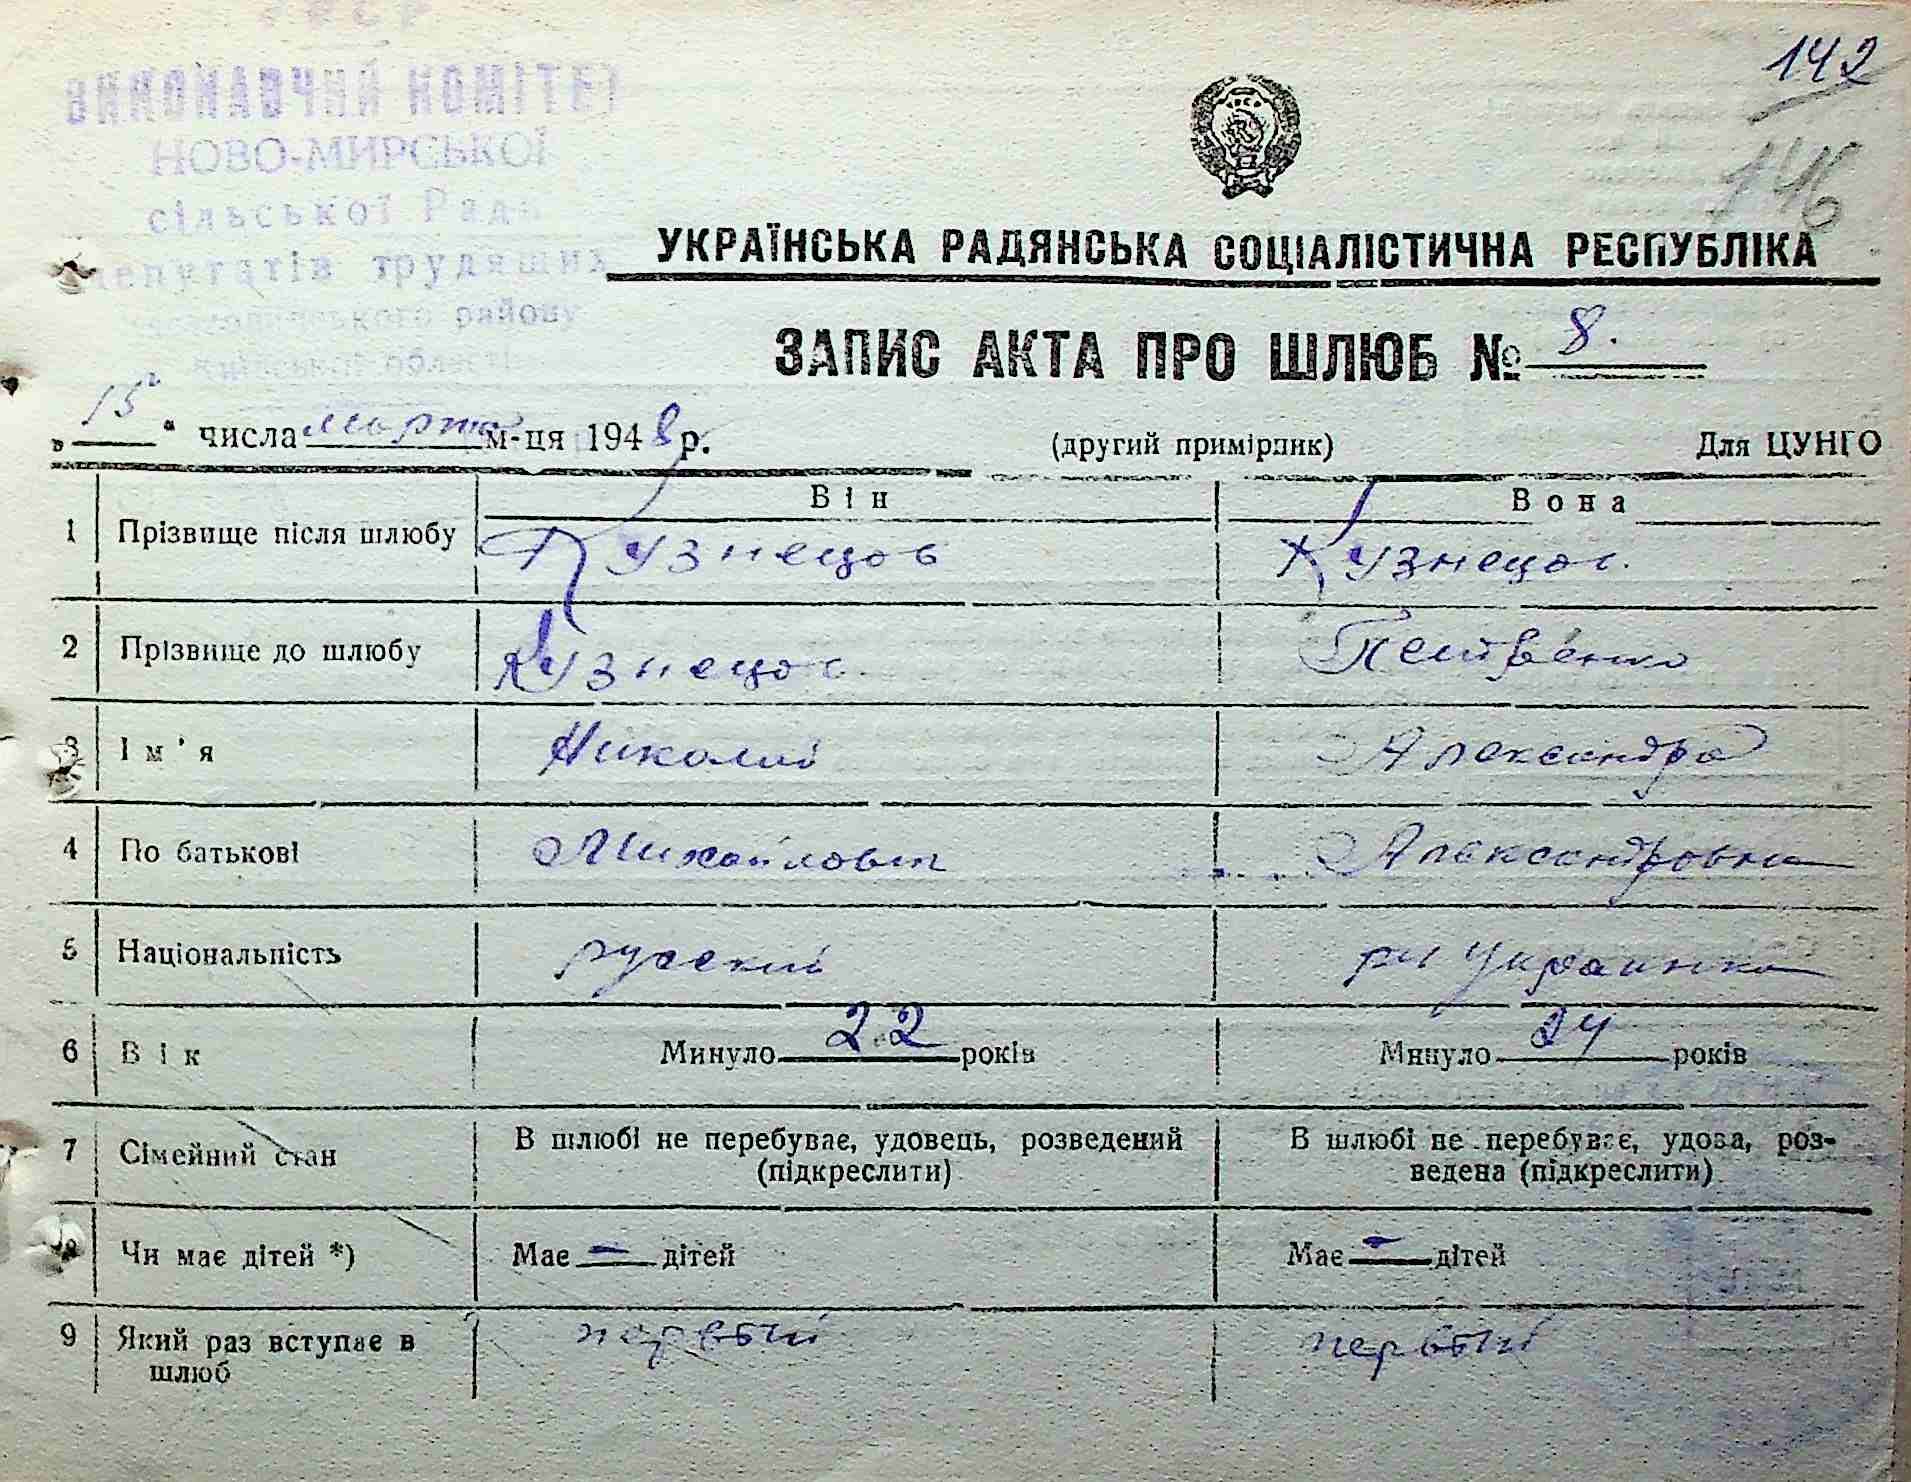 УРСР
ВИКОНАВЧИЙ КОМІТЕТ
НОВО-МИРСЬКОЇ
сільської Ради
депутатів трудящих
району
Київської області
142
146
УКРАЇНСЬКА РАДЯНСЬКА СОЦІАЛІСТИЧНА РЕСПУБЛІКА
ЗАПИС АКТА ПРО ШЛЮБ № 8.
„15“ числа марта м-ця 1948 р. (другий примірник) Для ЦУНГО
Він Вона
1 Прізвище після шлюбу Кузнецов Кузнецов.
2 Прізвище до шлюбу Кузнецов
3 Ім'я Николай Александра
4 По батькові Михайлович Александровна
5 Національність русский украинка
6 Вік Минуло 22 років Минуло 24 років
7 Сімейний стан В шлюбі не перебуває, удовець, розведений (підкреслити) В шлюбі не перебуває, удова, роз-
ведена (підкреслити)
8 Чи має дітей *) Має – дітей Має – дітей
9 Який раз вступає в шлюб первый первый